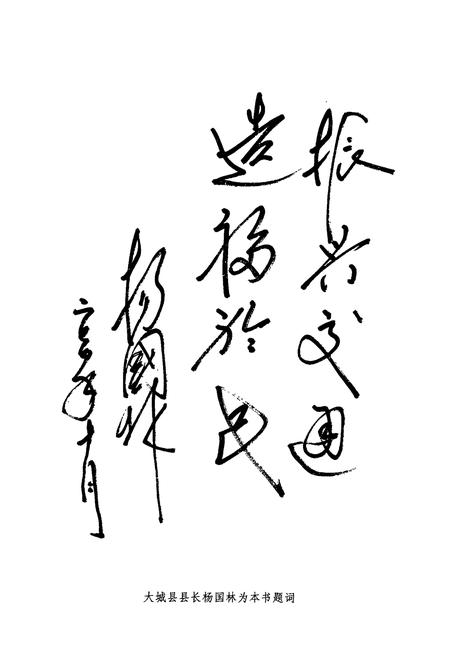 振兴交通
造福於民
杨國林
二〇〇〇年十月
大城县县长杨国林为本书题词